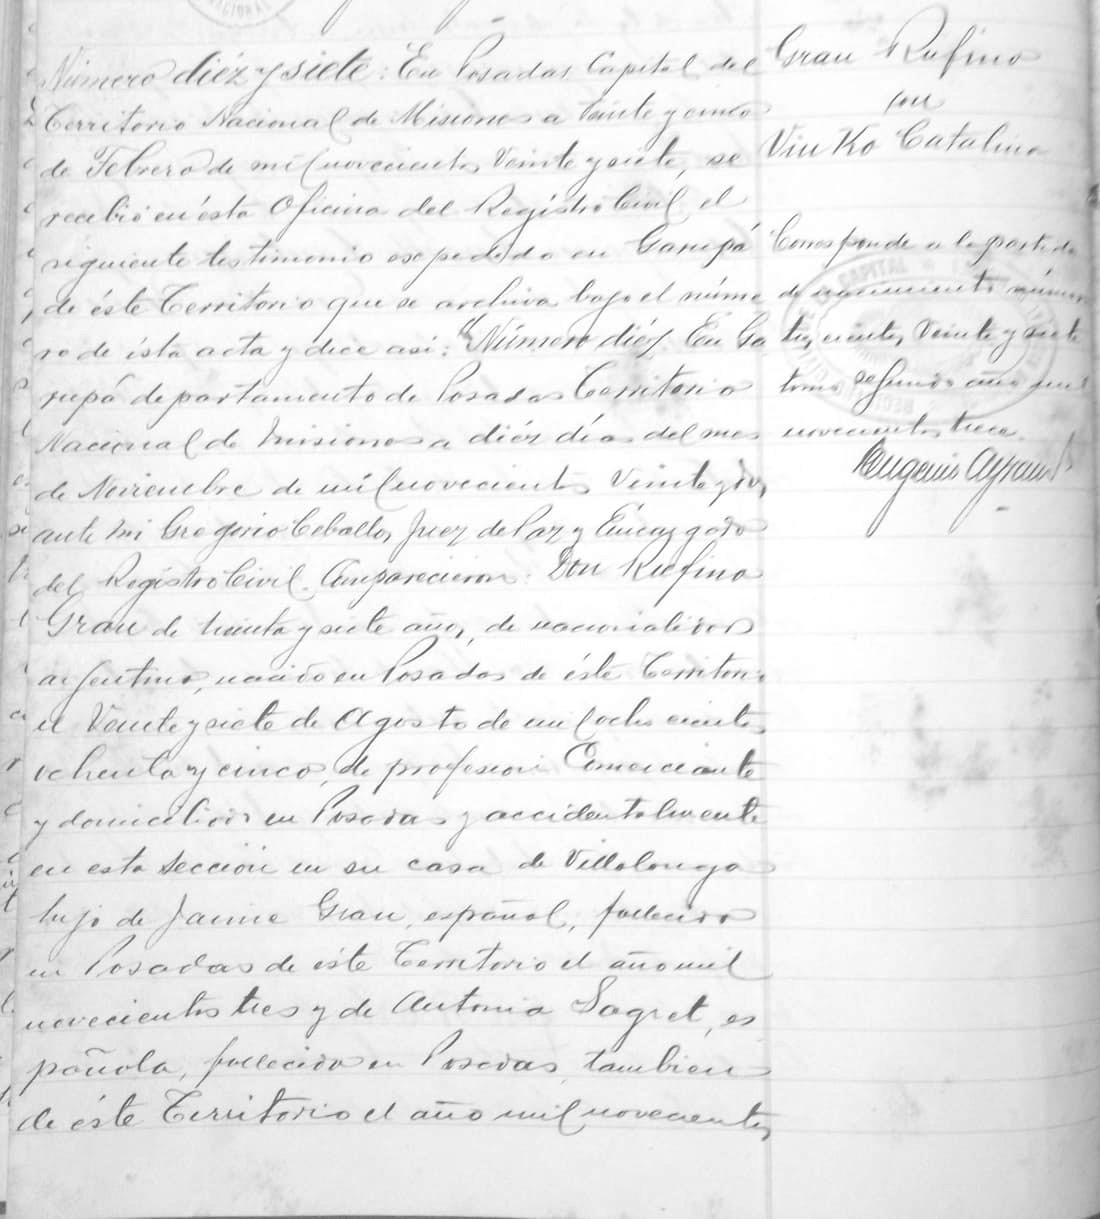 Número diéz y siete: En Posadas Capital del
Territorio Nacional de Misiones a veinte y cinco
de Febrero de mil novecientos veinte y siete, se
recibió en ésta Oficina del Registro Civil el
siguiente testimonio expedido en Garupá
de éste Territorio que se archiva bajo el núme
ro de ésta acta y dice asi: "Número diéz. En Ga
rupá departamento de Posadas Territorio
Nacional de Misiones a diéz días del mes
de Noviembre de mil novecientos veinte y dos,
ante mi Gregorio Ceballos, Juez de Paz y Encargado
del Registro Civil. Comparecieron: Don Rufino
Grau de treinta y siete años, de nacionalidad
argentino, nacido en Posadas de éste Territorio
el veinte y siete de Agosto de mil ocho cientos
ochenta y cinco, de profesion Comerciante
y domiciliado en Posadas y accidentalmente
en esta Sección en su casa de Villalonga
hijo de Jaime Grau, español, fallecido
en Posadas de éste Territorio el año mil
novecientos tres y de Antonia Sagret, es
pañola, fallecida en Posadas, tambien
de éste Territorio el año mil novecientos,
Grau Rufino
con
Vinko Catalina
Corresponde a la partida
de nacimiento número
tres cientos, veinte y siete
tomo segundo año mil
novecientos trece.
Eugenio
CAPITAL